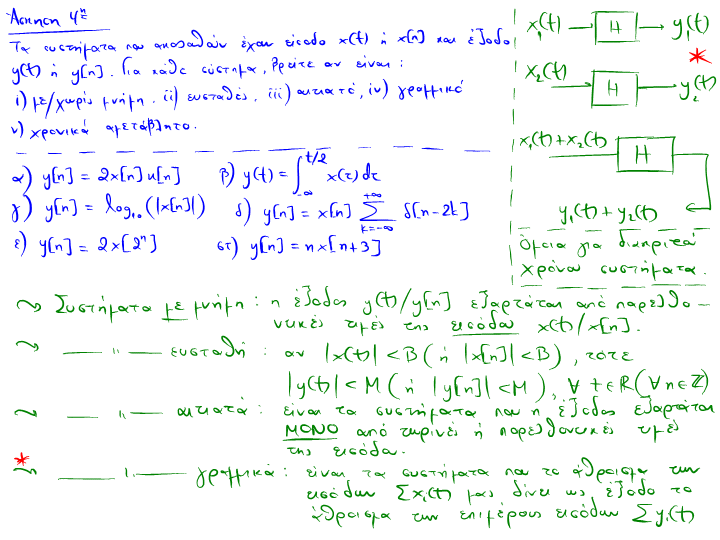 Άσκηση 4η
Τα συστήματα που ακολουθούν έχουν είσοδο x(t) ή x[n] και έξοδο
y(t) ή y[n]. Για κάθε σύστημα, βρείτε αν είναι:
i) με/χωρίς μνήμη, ii) ευσταθές, iii) αιτιατό, iv) γραμμικό
v) χρονικά αμετάβλητο.
α) y[n] = 2x[n]u[n] β) y(t) = ∫_{-∞}^{t/2} x(τ)dτ
γ) y[n] = log₁₀(|x[n]|) δ) y[n] = x[n] Σ_{k=-∞}^{+∞} δ[n-2k]
ε) y[n] = 2x[2ⁿ] στ) y[n] = nx[n+3]
x₁(t) → H → y₁(t)
*
x₂(t) → H → y₂(t)
x₁(t)+x₂(t) H
y₁(t)+y₂(t)
Όμοια για διακριτού
χρόνου συστήματα.
~> Συστήματα με μνήμη: η έξοδος y(t)/y[n] εξαρτάται από παρελθο-
ντικές τιμές της εισόδου x(t)/x[n].
~> —— " —— ευσταθή: αν |x(t)| < B (ή |x[n]| < B), τότε
|y(t)| < M (ή |y[n]| < M), ∀ t ∈ ℝ (∀ n ∈ ℤ)
~> —— " —— αιτιατά: είναι τα συστήματα που η έξοδος εξαρτάται
ΜΟΝΟ από τωρινές ή παρελθοντικές τιμές
της εισόδου.
*
~> —— " —— γραμμικά: είναι τα συστήματα που το άθροισμα των
εισόδων Σxᵢ(t) μας δίνει ως έξοδο το
άθροισμα των επιμέρους εισόδων Σyᵢ(t)